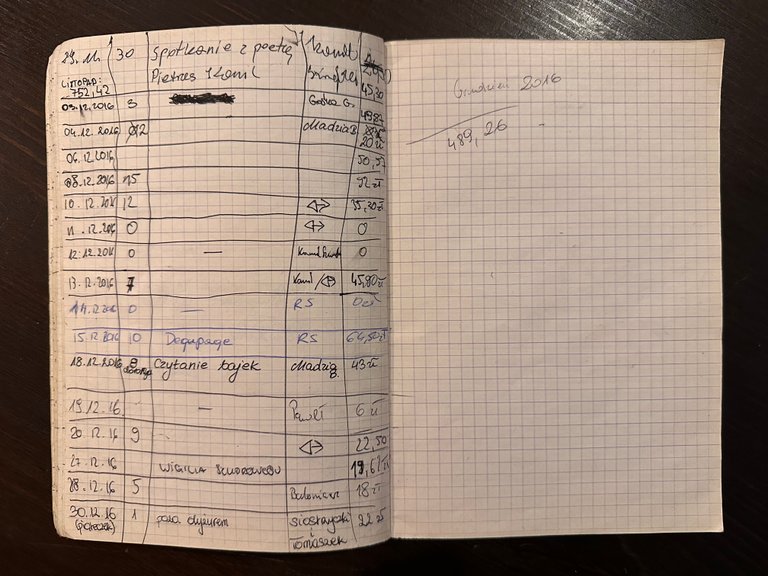 29.11. 30 Spotkanie z poetą
Pietrzę Kamil
LISTOPAD:
752,42 45,30
03.12.2016 3 Gośka G. 49,87
04.12.2016 12 Madzia B. 20 zł
06.12.2016 50,57
08.12.2016 15 92 zł
10.12.2016 12 ⇔ 35,30 zł
11.12.2016 0 ⇔ 0
12.12.2016 0 — Kamil 0
13.12.2016 7 Kamil/⇔ 45,80 zł
14.12.2016 0 — RS 0 zł
15.12.2016 10 Dequpage RS 64,50 zł
18.12.2016 8 Czytanie bajek Madzia B. 43 zł
19.12.16. — Paweł 6 zł
20.12.16 9 ⇔ 22,50
27.12.16 WIGILIA 19,62 zł
28.12.16 5 18 zł
30.12.16 1 poza dyżurem siostrzyczki 22 zł
(piąteczek) Tomaszek
Grudzień 2016
489,26 -